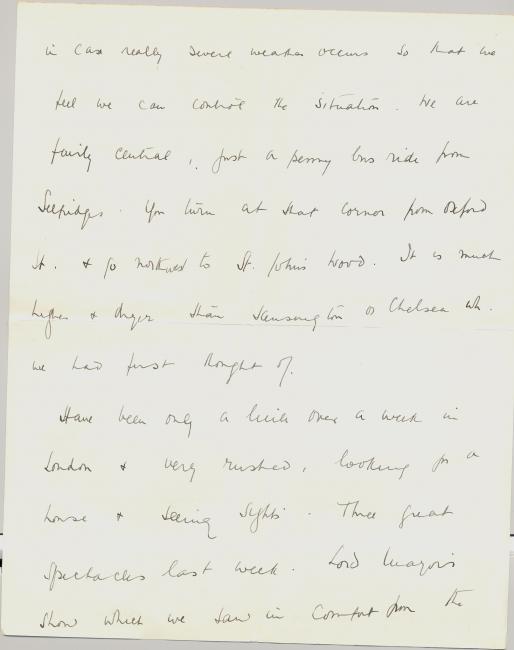 in case really severe weather occurs so that we
feel we can control the situation. We are
fairly central, just a penny bus ride from
Selfridges. You turn at that corner from Oxford
St. & go northwest to St. John's Wood. It is much
higher & dryer than Kensington or Chelsea wh.
we had first thought of.
Have been only a little over a week in
London & very rushed, looking for a
house & seeing sights. Three great
spectacles last week. Lord Mayor's
show which we saw in comfort from the